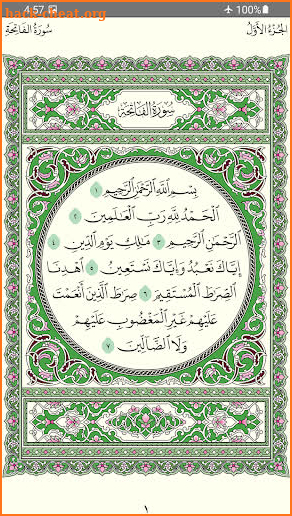 4:57 100%
hack-cheat.org
سُورَةُ الفَاتِحَةِ الجُزْءُ الأَوَّلُ
سُورَةُ الفَاتِحَةِ
بِسْمِ ٱللَّهِ ٱلرَّحْمَٰنِ ٱلرَّحِيمِ ١
ٱلْحَمْدُ لِلَّهِ رَبِّ ٱلْعَٰلَمِينَ ٢
ٱلرَّحْمَٰنِ ٱلرَّحِيمِ ٣ مَٰلِكِ يَوْمِ ٱلدِّينِ ٤
إِيَّاكَ نَعْبُدُ وَإِيَّاكَ نَسْتَعِينُ ٥ ٱهْدِنَا
ٱلصِّرَٰطَ ٱلْمُسْتَقِيمَ ٦ صِرَٰطَ ٱلَّذِينَ أَنْعَمْتَ
عَلَيْهِمْ غَيْرِ ٱلْمَغْضُوبِ عَلَيْهِمْ
وَلَا ٱلضَّآلِّينَ ٧
١